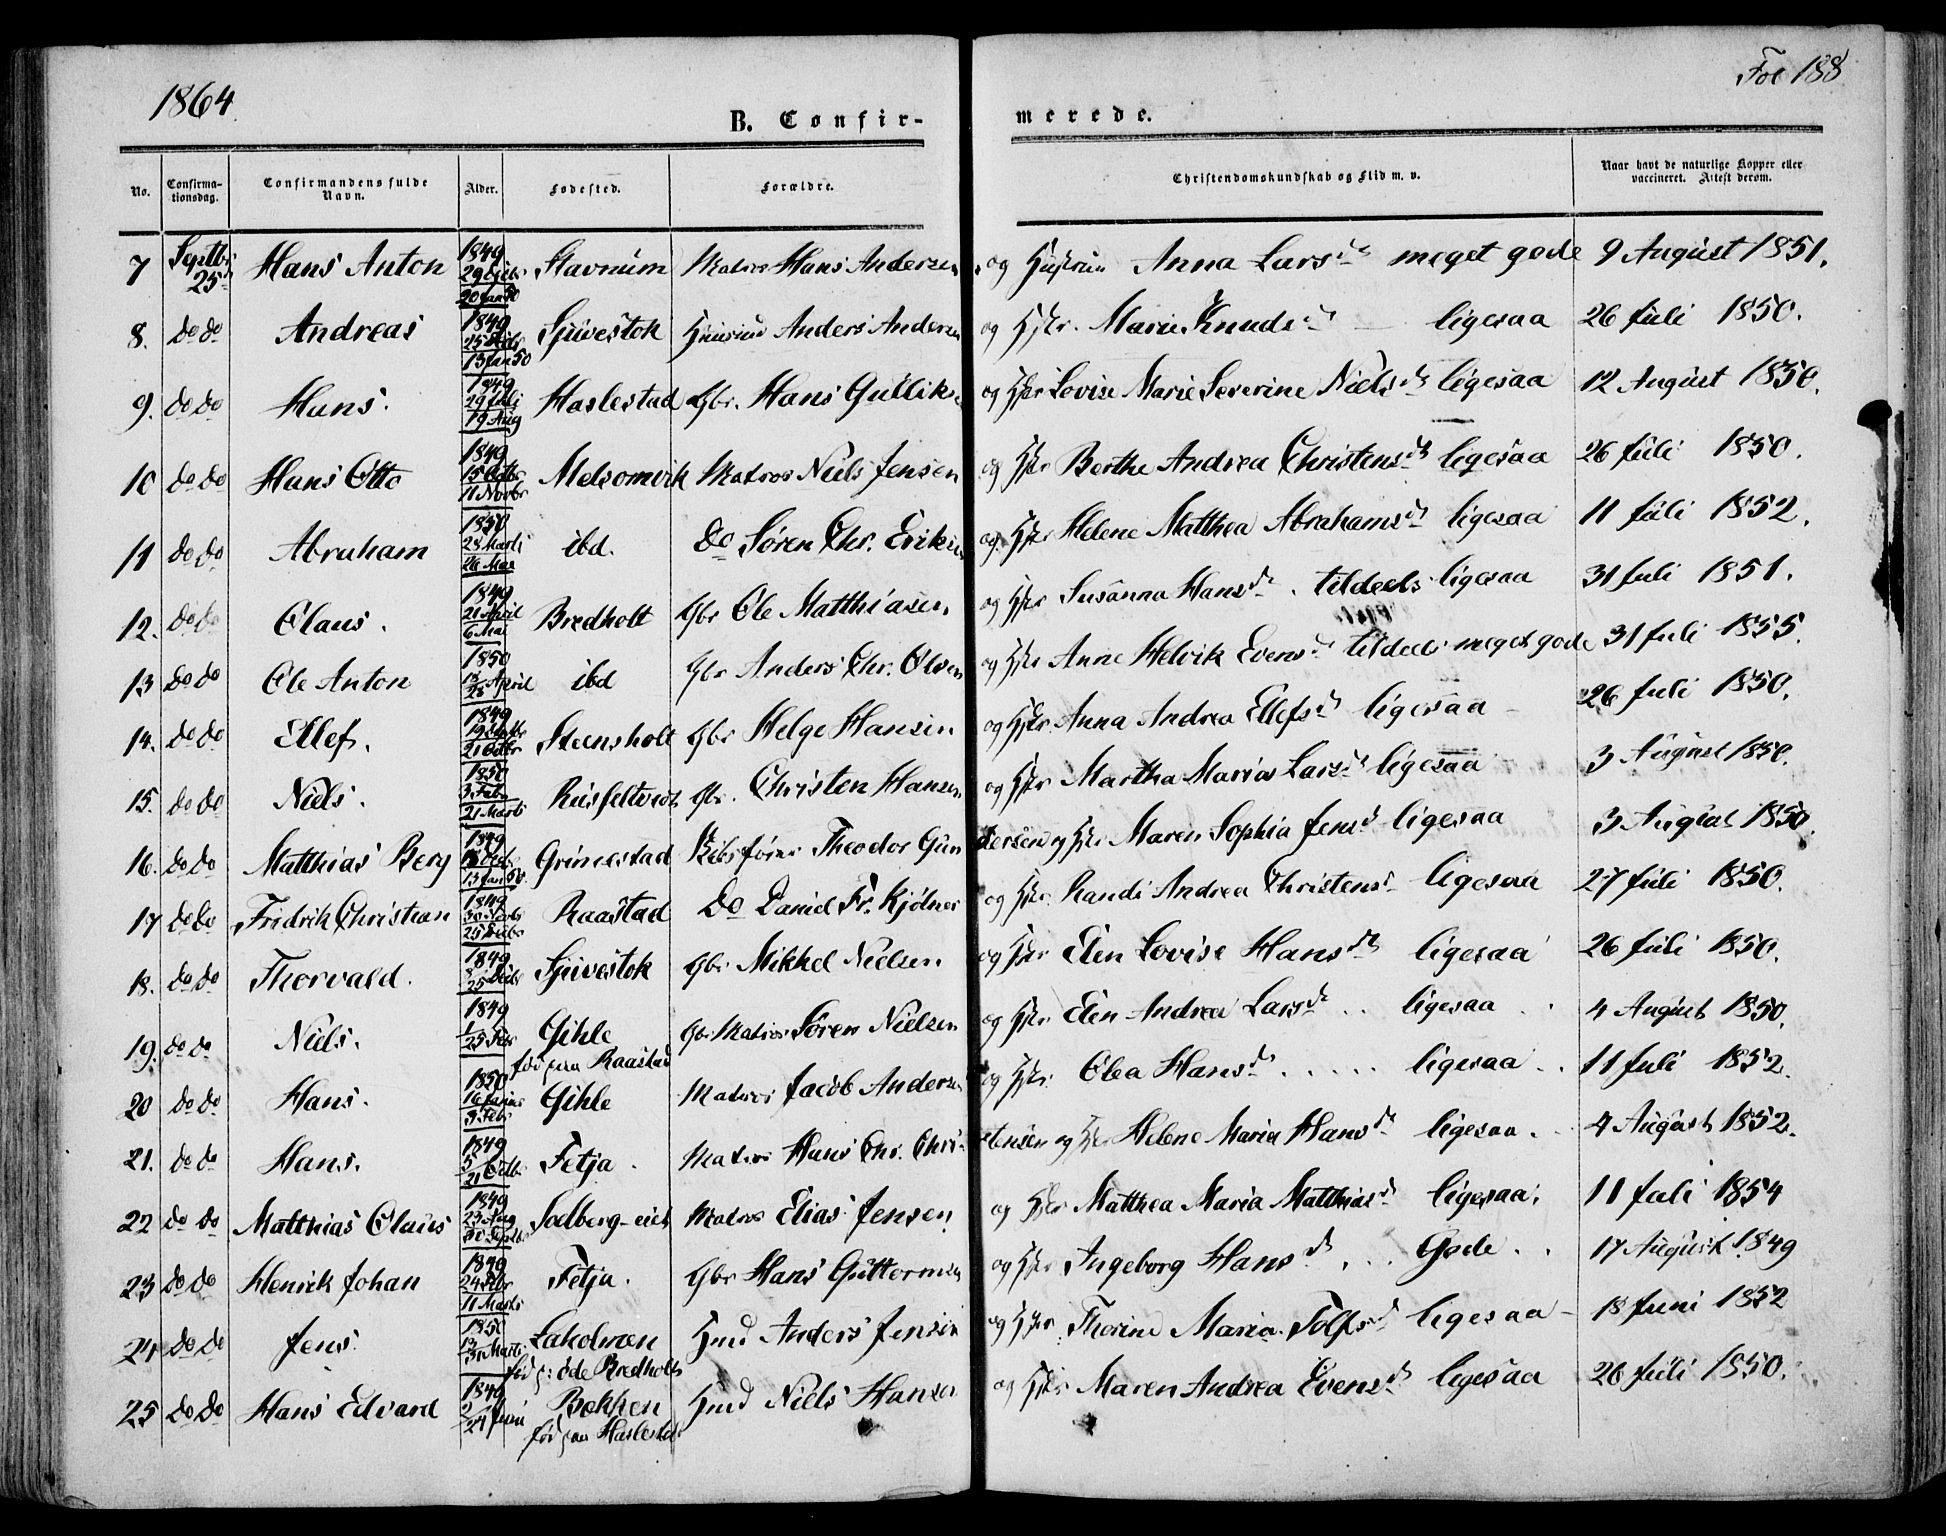 1864
Fol 188
B. Confir-
merede.
No.
Confirma-
tionsdag.
Confirmandens fulde
Navn.
Alder.
Fødested.
Forældre.
Christendomskundskab og Flid m. v.
Naar havt de naturlige Kopper eller
vaccineret. Attest derom.
7 Septbr 25 Hans Anton 1849 20 Jan 50 Stavnum Matros Hans Andersen og Hustrue Anna Larsd meget gode 9 August 1851.
8. do do Andreas 1849 13 Jan 50 Sjuestok Anders Andersen og Hstr. Marie Knudsd ligesaa 26 Juli 1850.
9. do do Hans. 1849 29 Juli 19 Aug Haslestad Gbr. Hans Gulliks og Hstr Lovise Marie Severine Nielsd ligesaa 12 August 1850.
10 do do Hans Otto 1849 15 Octbr 11 Novbr Melsomvik Matros Niels Jensen og Hstr Berthe Andrea Christensd ligesaa 26 Juli 1850.
11 do do Abraham 1850 23 Marts 26 Mai ibd. do Søren Chr. Eriksen og Hstr Helene Matthea Abrahamsd ligesaa 11 Juli 1852.
12. do do Claus. 1849 21 April 6 Mai Bredholt Gbr Ole Matthiasen og Hstr Susanna Hansd. tildeels ligesaa 31 Juli 1851.
13 do do Ole Anton 1850 28 April ibd Gbr Anders Chr. Olsen og Hstr Anne Helvik Evensd tildeels meget gode 31 Juli 1855.
14. do do Ellef. 1849 19 Septbr 21 Octbr Steensholt Gbr Helge Hansen og Hstr. Anna Andrea Ellefsd ligesaa 26 Juli 1850.
15. do do Niels. 1850 3 Febr 21 Marts Gbr. Christen Hansen og Hstr Martha Maria Larsd ligesaa 3 August 1850.
16. do do Matthias Berg 1849 13 Jan 50. Grimestad Skibsfører Theodor Gun dersen og Hstr Maren Sophia Jensd ligesaa 3 August 1850.
17 do do Fridrik Christian 1849 30 Novbr Raastad Do Daniel Fr. Kjølner og Hstr. Randi Andrea Christensd ligesaa 27 Juli 1850.
18. do do Thorvald. 1849 8 25 Decbr Sjuestok Gbr Mikkel Nielsen og Hstr Elen Lovise Hansd ligesaa 26 Juli 1850.
19. do do Niels. 1849 1 25 Febr Gihle Gbr Matros Søren Nielsen og Hstr Elen Andrea Larsd.. ligesaa . 4 August 1850.
fød paa Raastad
20 do do Hans. 1850 16 Januar 3 Febr Gihle Matros Jacob Andersen og Hstr. Olea Hansd..... ligesaa .. 11 Juli 1852.
21. do do Hans. 1849 5 21 Octbr Fetja. Matros Hans Chr. Chri- stensen og Hstr Helene Maria Hansd ligesaa. 4 August 1852.
22 do do Matthias Claus 1849 23 Aug 30 Septbr Solberg-eiet Matros Elias Jensen og Hstr Matthea Maria Matthiasd ligesaa. 11 Juli 1854
23 do do Henrik Johan 1849 24 Febr 11 Marts Fetja. Gbr Hans Guttormsen og Hstr Ingeborg Hansd... Gode.. 17 August 1849
24 do do Jens. 1850 13 31 Marts Lakolmen Hmd Anders Jensen og Hstr Thorine Maria Tolfsd ligesaa 18 Juni 1852
fød p: øde Bredholt
25 do do Hans Edvard 1849 2 24 Juni Bokken Hmd Niels Hansen og Hstr Maren Andrea Evensd ligesaa 26 Juli 1850.
fød paa Haslestad